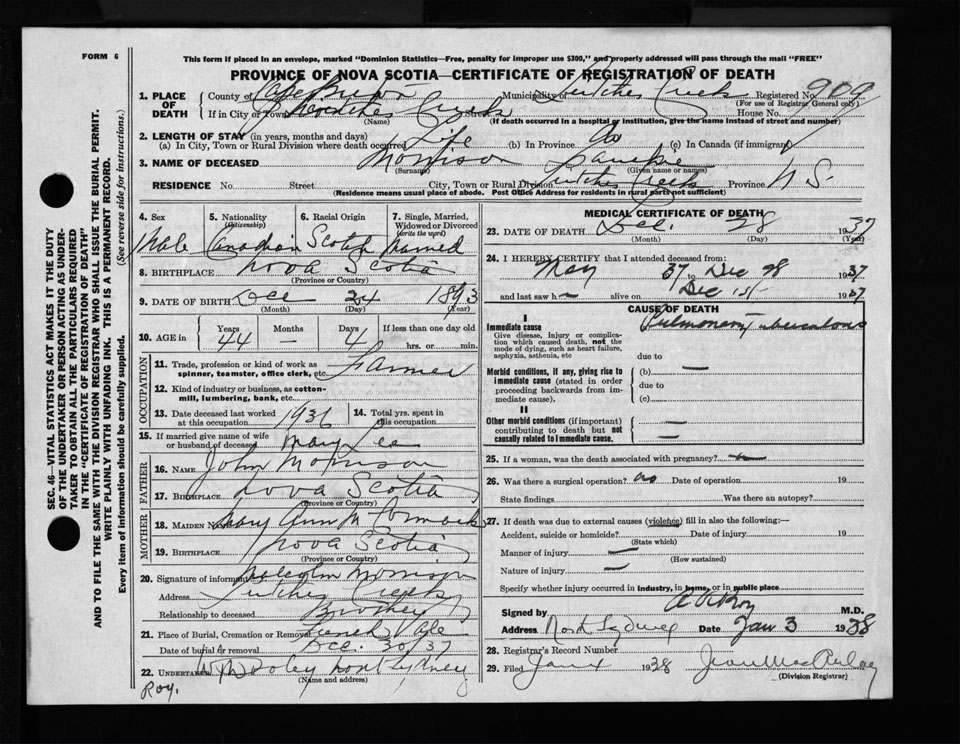 FORM 6
This form if placed in an envelope, marked "Dominion Statistics—Free, penalty for improper use $300," and properly addressed will pass through the mail "FREE"
PROVINCE OF NOVA SCOTIA—CERTIFICATE OF REGISTRATION OF DEATH
1. PLACE OF DEATH County of Cape Breton Municipality of Leitches Creek Registered No. 909
(For use of Registrar General only)
If in City or Town Leitches Creek Street House No.
(Name) (If death occurred in a hospital or institution, give the name instead of street and number)
2. LENGTH OF STAY (in years, months and days)
(a) In City, Town or Rural Division where death occurred Life (b) In Province do (c) In Canada (if immigrant)
3. NAME OF DECEASED Morrison
(Surname) (Given name or names)
RESIDENCE No. Street City, Town or Rural Division Leitches Creek Province N S.
(Residence means usual place of abode. Post Office Address for residents in rural parts not sufficient)
4. Sex 5. Nationality (Citizenship) 6. Racial Origin 7. Single, Married, Widowed or Divorced (Write the word)
Male Canadian Scotch Married
8. BIRTHPLACE Nova Scotia
(Province or Country)
9. DATE OF BIRTH Dec 24 1893
(Month) (Day) (Year)
10. AGE in Years Months Days If less than one day old
44 — 4 hrs. or min.
OCCUPATION
11. Trade, profession or kind of work as spinner, teamster, office clerk, etc. Farmer
12. Kind of industry or business, as cotton-mill, lumbering, bank, etc.
13. Date deceased last worked at this occupation 1936 14. Total yrs. spent in this occupation
15. If married give name of wife or husband of deceased Mary Lee
FATHER
16. NAME John Morrison
17. BIRTHPLACE Nova Scotia
(Province or Country)
MOTHER
18. MAIDEN NAME Mary Ann McCormack
19. BIRTHPLACE Nova Scotia
(Province or Country)
20. Signature of informant Malcolm Morrison
Address Leitches Creek
Relationship to deceased Brother
21. Place of Burial, Cremation or Removal French Vale
Date of burial or removal Dec. 30, 37
22. UNDERTAKER Dooley North Sydney
(Name and address)
Roy.
MEDICAL CERTIFICATE OF DEATH
23. DATE OF DEATH Dec. 28 1937
(Month) (Day) (Year)
24. I HEREBY CERTIFY that I attended deceased from:
May 37 to Dec 28 1937
and last saw h alive on Dec 1st 1937
CAUSE OF DEATH
I
Immediate cause Pulmonary tuberculosis
Give disease, injury or complication which caused death, not the mode of dying, such as heart failure, asphyxia, asthenia, etc due to
Morbid conditions, if any, giving rise to immediate cause (stated in order proceeding backwards from immediate cause). (b) —
due to
(c)
II
Other morbid conditions (if important) contributing to death but not causally related to immediate cause. —
—
25. If a woman, was the death associated with pregnancy? —
26. Was there a surgical operation? no Date of operation 19
State findings Was there an autopsy?
27. If death was due to external causes (violence) fill in also the following:—
Accident, suicide or homicide? Date of injury 19
(State which)
Manner of injury —
(How sustained)
Nature of injury —
Specify whether injury occurred in industry, in home, or in public place
Signed by M.D.
Address North Sydney Date Jan 3 1938
28. Registrar's Record Number
29. Filed Jan 4 1938 Jean MacAulay
(Division Registrar)
SEC. 46—VITAL STATISTICS ACT MAKES IT THE DUTY
OF THE UNDERTAKER OR PERSON ACTING AS UNDER-
TAKER TO OBTAIN ALL THE PARTICULARS REQUIRED
IN THE "CERTIFICATE OF REGISTRATION OF DEATH"
AND TO FILE THE SAME WITH THE DIVISION REGISTRAR WHO SHALL ISSUE THE BURIAL PERMIT.
WRITE PLAINLY WITH UNFADING INK. THIS IS A PERMANENT RECORD.
Every item of information should be carefully supplied. (See reverse side for instructions.)